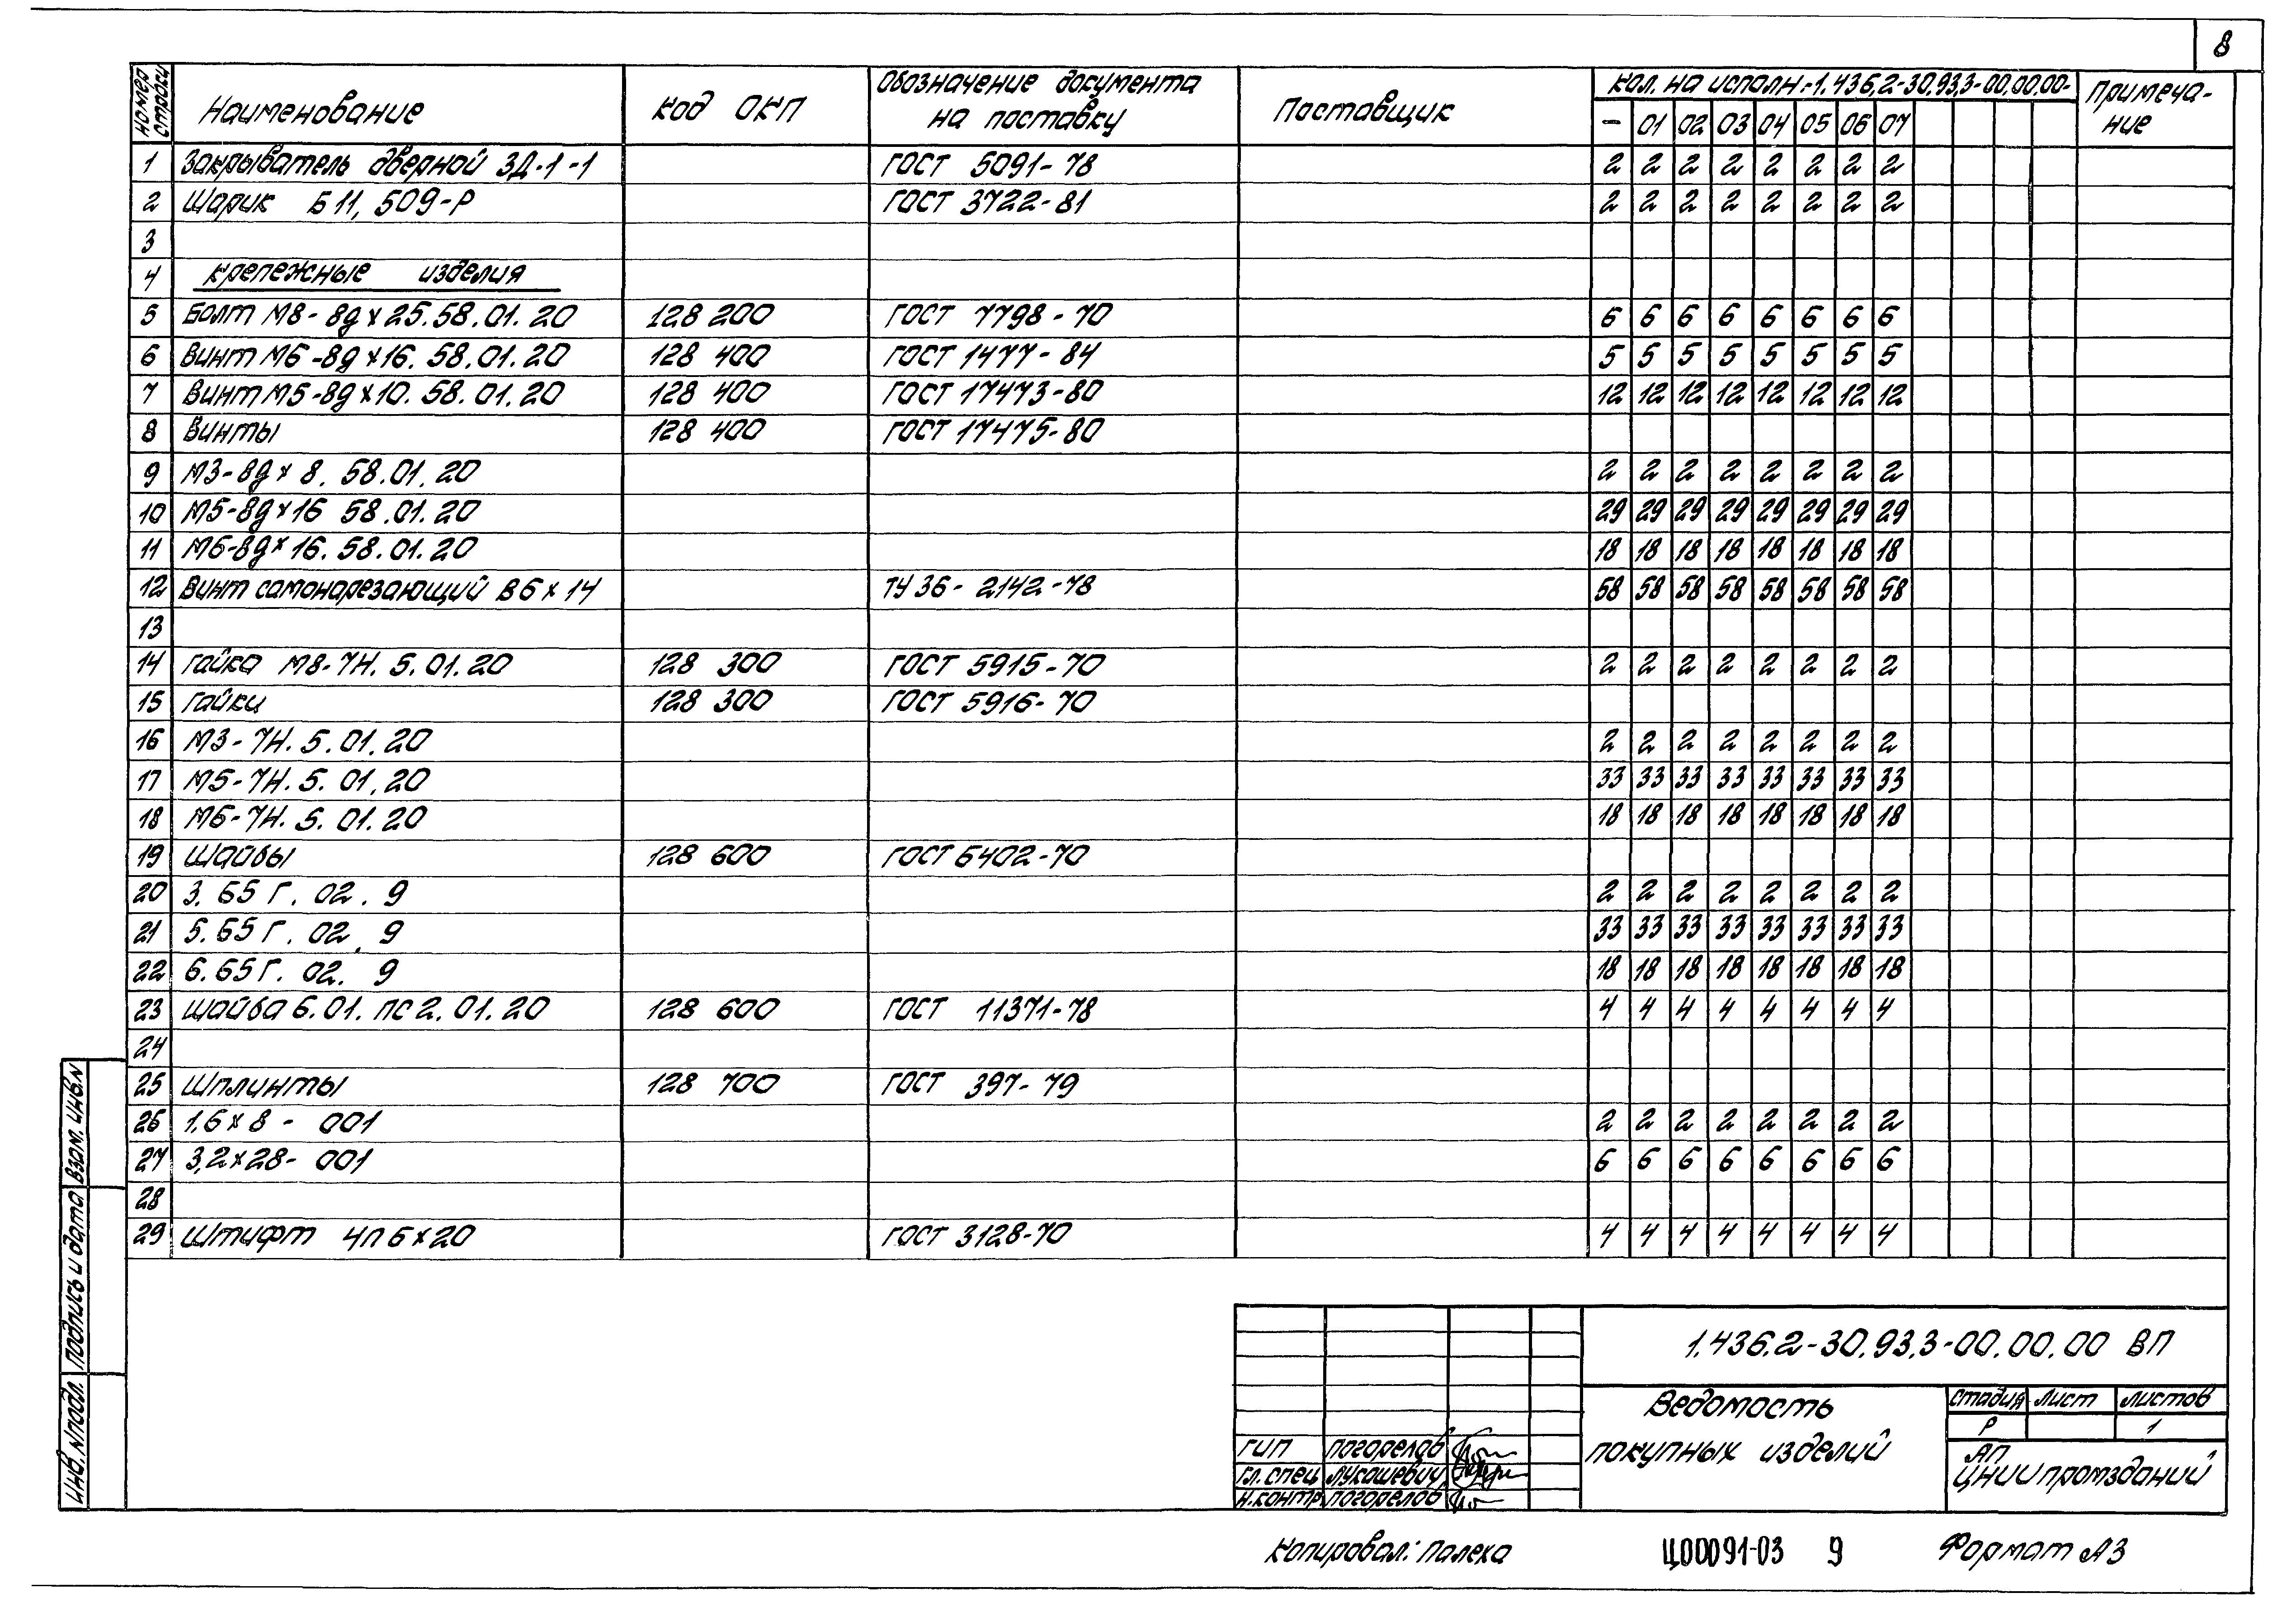 8
Номер строки | Наименование | Код ОКП | Обозначение документа на поставку | Поставщик | Кол. на исполн.-1.436.2-30.93.3-00.00.00- | Примечание
– 01 02 03 04 05 06 07
1 Закрыватель дверной ЗД-1-1 ГОСТ 5091-78 2 2 2 2 2 2 2 2
2 Шарик Б 11,509-Р ГОСТ 3722-81 2 2 2 2 2 2 2 2
3
4 Крепежные изделия
5 Болт М8-8g×25.58.01.20 128 200 ГОСТ 7798-70 6 6 6 6 6 6 6 6
6 Винт М6-8g×16.58.01.20 128 400 ГОСТ 1477-84 5 5 5 5 5 5 5 5
7 Винт М5-8g×10.58.01.20 128 400 ГОСТ 17473-80 12 12 12 12 12 12 12 12
8 Винты 128 400 ГОСТ 17475-80
9 М3-8g×8.58.01.20 2 2 2 2 2 2 2 2
10 М5-8g×16 58.01.20 29 29 29 29 29 29 29 29
11 М6-8g×16.58.01.20 18 18 18 18 18 18 18 18
12 Винт самонарезающий В6×14 ТУ 36-2142-78 58 58 58 58 58 58 58 58
13
14 Гайка М8-7Н.5.01.20 128 300 ГОСТ 5915-70 2 2 2 2 2 2 2 2
15 Гайки 128 300 ГОСТ 5916-70
16 М3-7Н.5.01.20 2 2 2 2 2 2 2 2
17 М5-7Н.5.01.20 33 33 33 33 33 33 33 33
18 М6-7Н.5.01.20 18 18 18 18 18 18 18 18
19 Шайбы 128 600 ГОСТ 6402-70
20 3.65Г.02.9 2 2 2 2 2 2 2 2
21 5.65Г.02.9 33 33 33 33 33 33 33 33
22 6.65Г.02.9 18 18 18 18 18 18 18 18
23 Шайба 6.01.ПС2.01.20 128 600 ГОСТ 11371-78 4 4 4 4 4 4 4 4
24
25 Шплинты 128 700 ГОСТ 397-79
26 1,6×8-001 2 2 2 2 2 2 2 2
27 3,2×28-001 6 6 6 6 6 6 6 6
28
29 Штифт 4п6×20 ГОСТ 3128-70 4 4 4 4 4 4 4 4
Взам. инв.N
Подпись и дата
Инв. N подл.
1.436.2-30.93.3-00.00.00 ВП
Ведомость
покупных изделий
Стадия Лист Листов
Р 1
АП
ЦНИИпромзданий
ГИП Погорелов
Гл. спец Лукашевич
Н.контр Погорелов
Копировал: Палеха
Ц00091-03 9
Формат А3